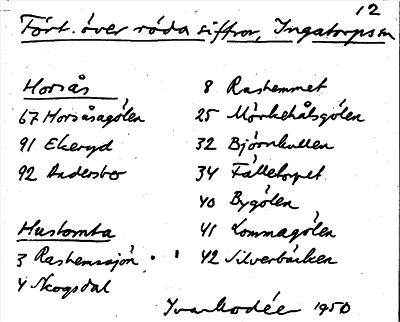 12
Fört. över röda siffror, Ingatorps sn
Horsås
67 Horsåsagölen
91 Ekeryd
92 Andersbo
Hustomta
3 Rashemssjön
4 Skogsdal
8 Rashemmet
25 Mörkehålsgölen
32 Björnkullen
34 Fälletorpet
40 Bygölen
41 Lommagölen
42 Silverbäcken
Ivar Modéer 1950